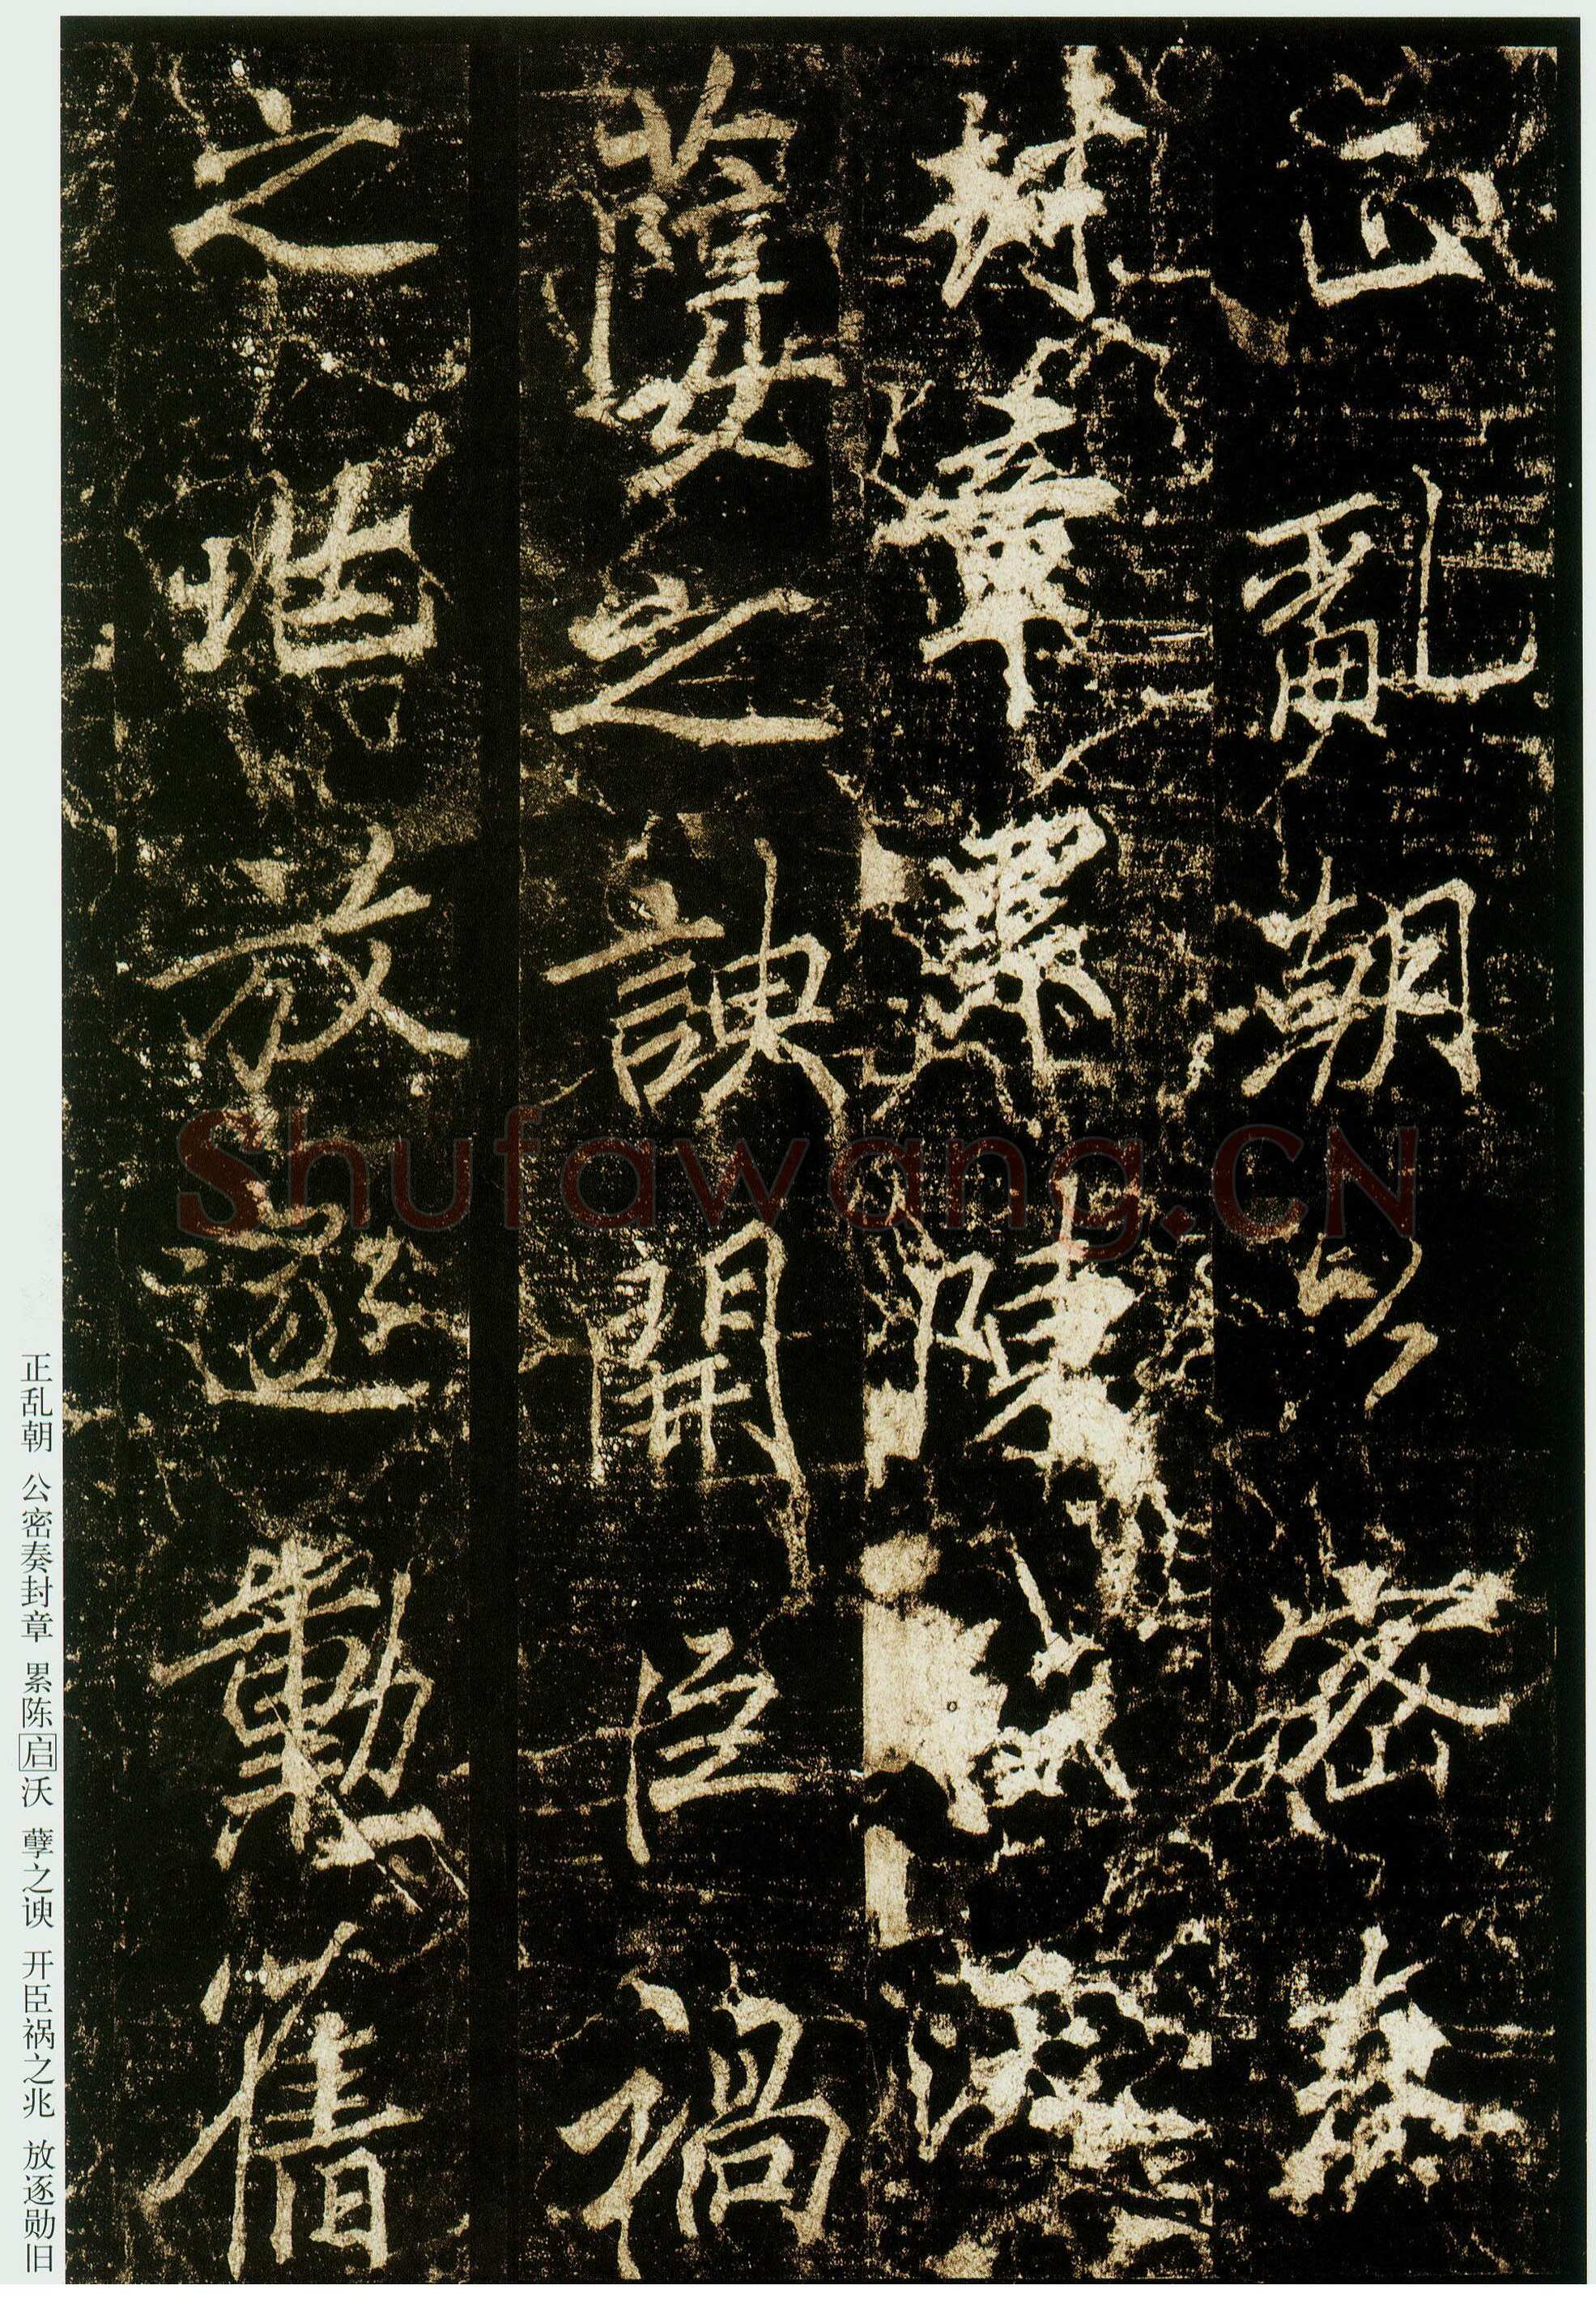 正亂朝公密奏
封章累陳沃
孽之諛開臣禍
之堦放逐勳舊
正乱朝 公密奏封章 累陈启沃 孽之谀 开臣祸之兆 放逐勋旧
Shufawang.CN